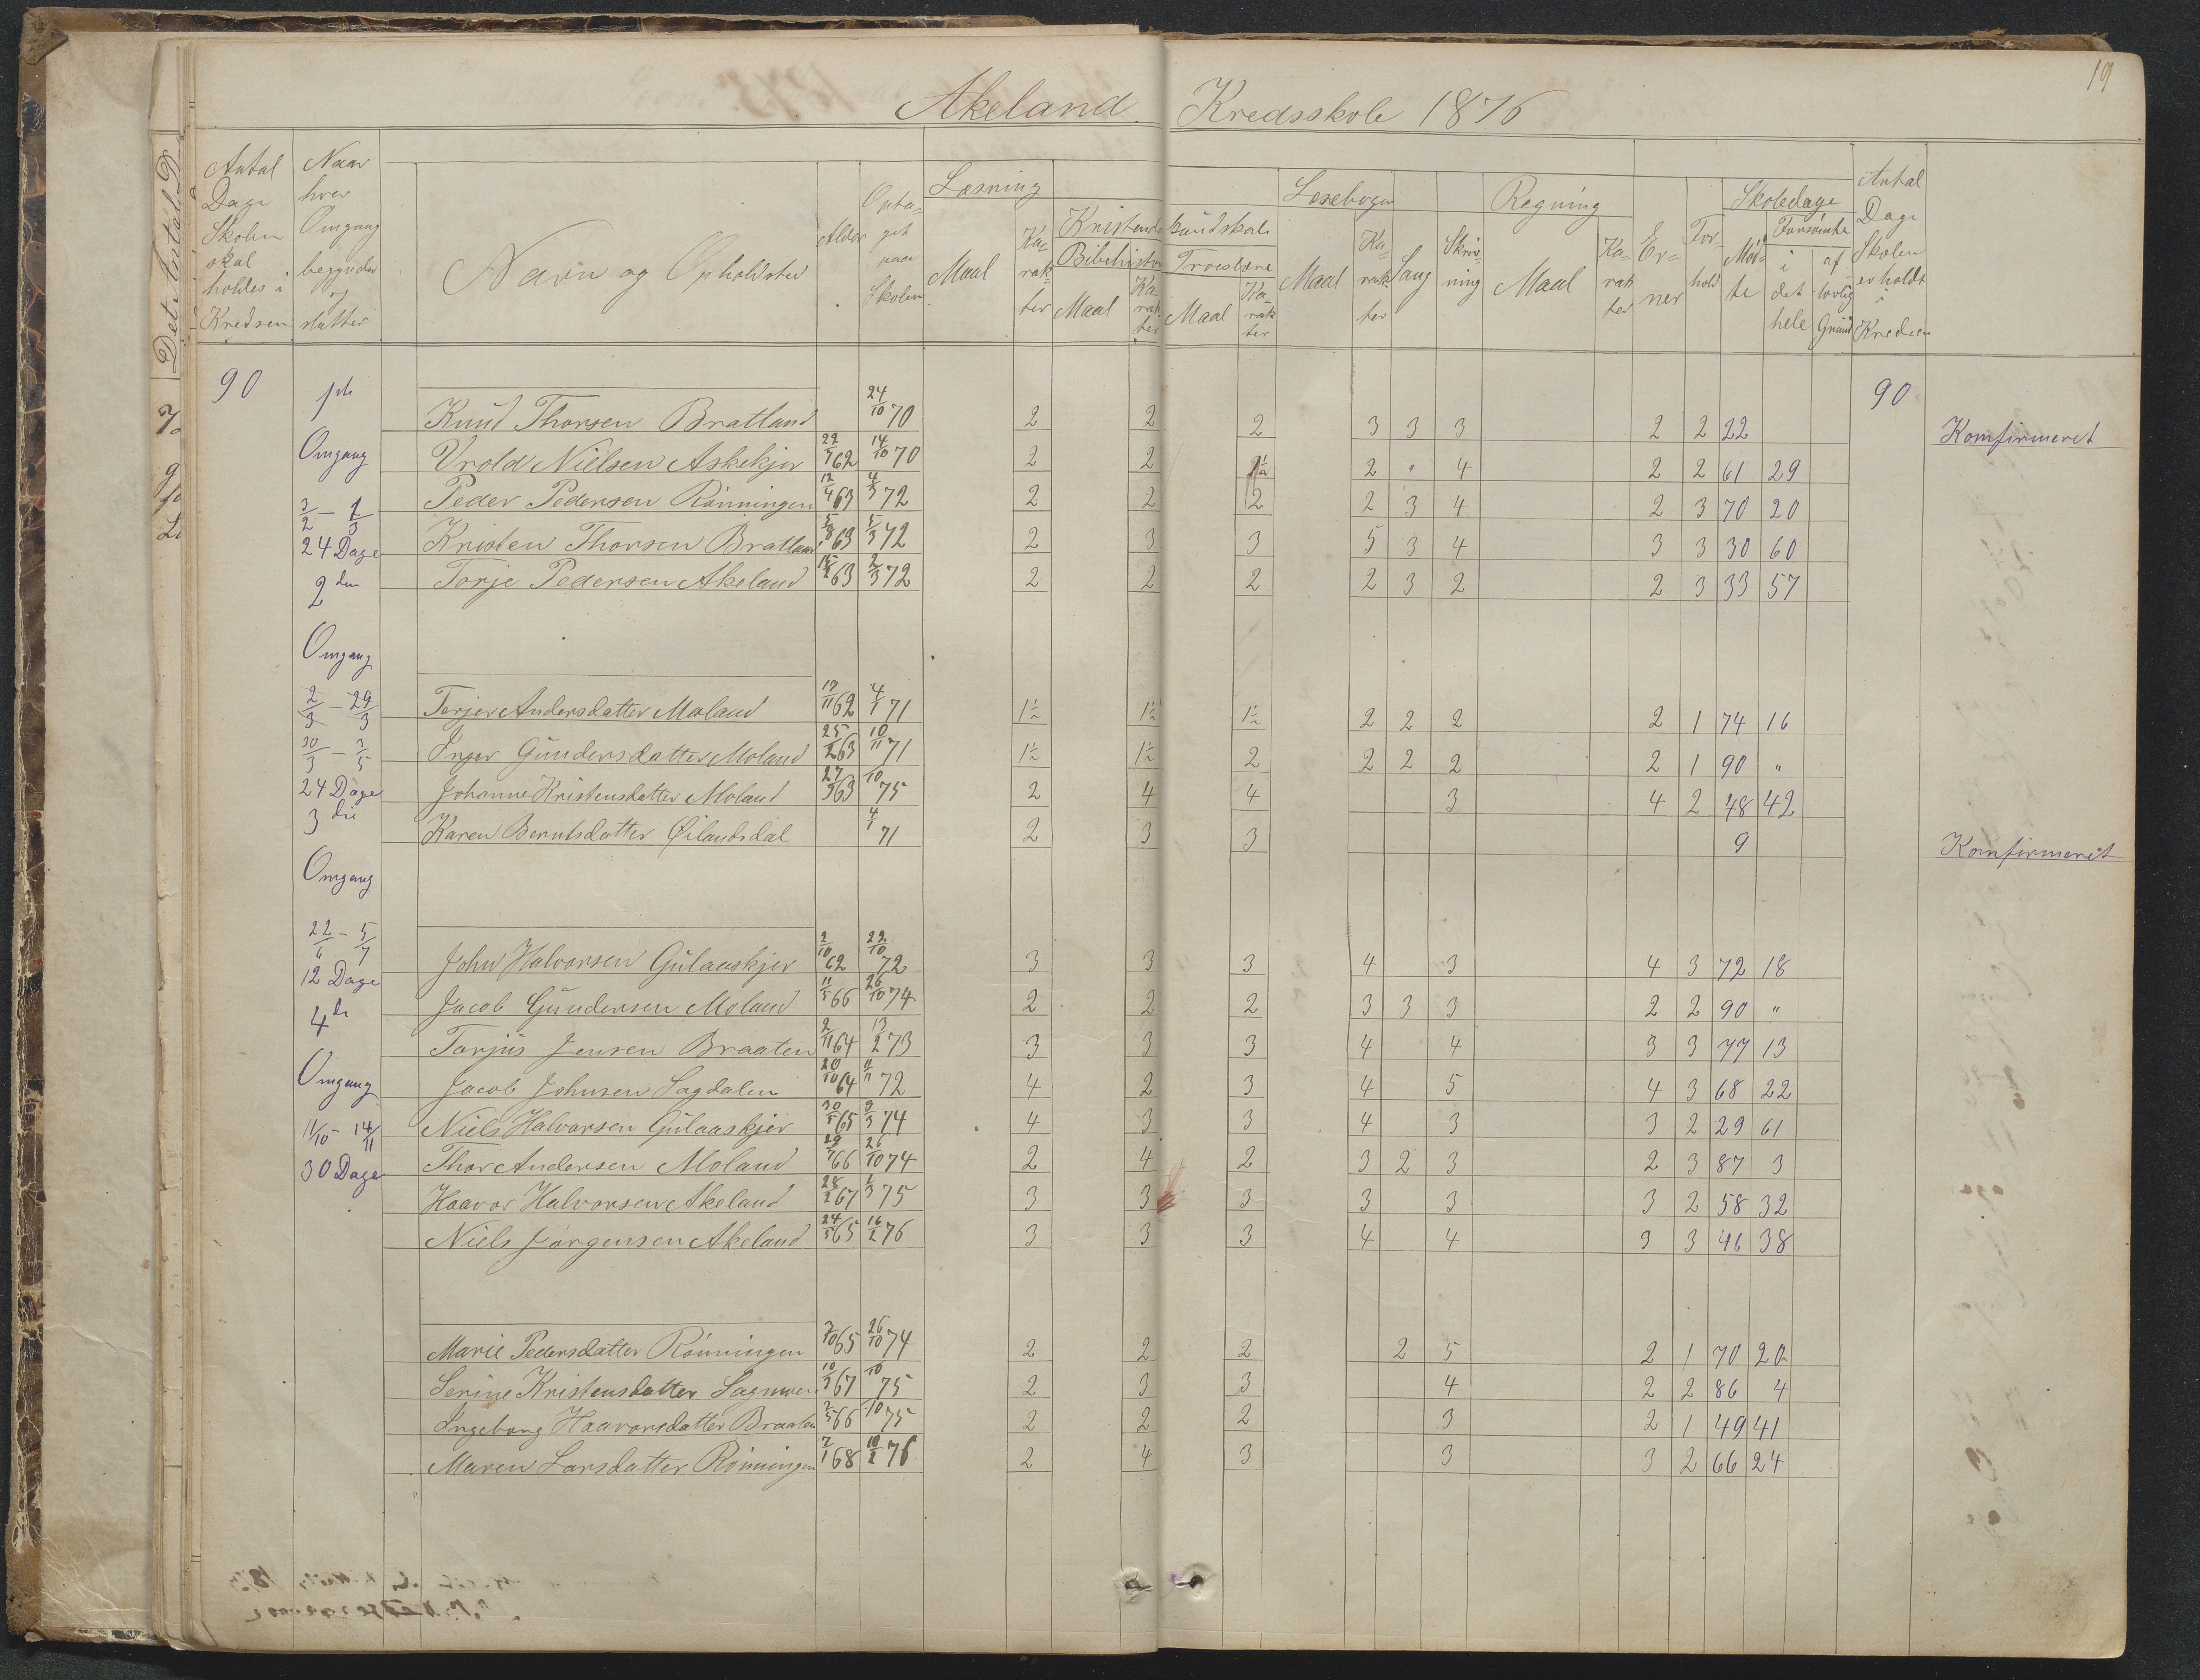 19
Akeland Kredsskole 1876
Antal Dage Skolen skal holdes i Kredsen
Naar hver Omgang begynder og slutter
Navn og Opholdsted
Alder
Optaget paa Skolen
Læsning
Maal
Karakter
Kristendomskundskab
Bibelhistorie
Maal
Karakter
Troeslære
Maal
Karakter
Læsebogen
Maal
Karakter
Sang
Skrivning
Regning
Maal
Karakter
Evner
Forhold
Skoledage
Mødte
Forsømte
i det hele
af lovlig Grund
Antal Dage Skolen er holdt i Kredsen
90
1ste
Omgang
3/2 - 1/3
24 Dage
2den
Omgang
2/3 - 29/3
30/3 - 3/5
24 Dage
3die
Omgang
22/6 - 5/7
12 Dage
4de
Omgang
11/10 - 14/11
30 Dage
Knud Thorsen Bratland 24/10 70 2 2 2 3 3 3 2 2 22 90 Komfirmeret
Vrold Nielsen Askekjer 22/5 62 14/10 70 2 2 2 " 4 2 2 61 29
Peder Pedersen Rønningen 12/4 63 4/3 72 2 2 2 2 3 4 2 3 70 20
Kristen Thorsen Bratland 5/8 63 5/3 72 2 3 3 5 3 4 3 3 30 60
Torje Pedersen Akeland 63 2/3 72 2 2 2 2 3 2 2 3 33 57
Torjer Andersdatter Moland 17/11 62 4/1 71 1½ 1½ 1½ 2 2 2 2 1 74 16
Inger Gundersdatter Moland 25/2 63 10/11 71 1½ 1½ 2 2 2 2 2 1 90 "
Johanne Kristensdatter Moland 27/3 63 /10 75 2 4 4 3 4 2 48 42
Karen Berntsdatter Øilandsdal 4/1 71 2 3 3 9 Komfirmeret
John Halvorsen Gulaaskjer 2/10 62 22/10 72 3 3 3 4 3 4 3 72 18
Jacob Gundersen Moland 11/5 66 26/10 74 2 2 2 3 3 3 2 2 90 "
Torjus Jensen Braaten 2/11 64 13/2 73 3 3 3 4 4 3 3 77 13
Jacob Johnsen Sagdalen 20/10 64 11/11 72 4 2 3 4 5 4 3 68 22
Niels Halvorsen Gulaaskjer 30/5 65 9/3 74 4 3 3 4 3 3 2 29 61
Thor Andersen Moland 29/7 66 26/10 74 2 4 2 3 2 3 2 3 87 3
Haavor Halvorsen Akeland 28/2 67 1/3 75 3 3 3 3 3 3 2 58 32
Niels Jørgensen Akeland 24/5 65 16/2 76 3 3 3 4 4 3 3 46 38
Marie Pedersdatter Rønningen 3/10 65 26/10 74 2 2 2 2 5 2 1 70 20
Serine Kristensdatter 10/3 67 /10 75 2 3 3 4 2 2 86 4
Ingeborg Haavorsdatter Braaten 2/5 66 /10 75 2 2 2 3 2 1 49 41
Maren Larsdatter Rønningen 7/1 68 18/2 76 2 4 3 3 3 2 66 24
Det Antal D